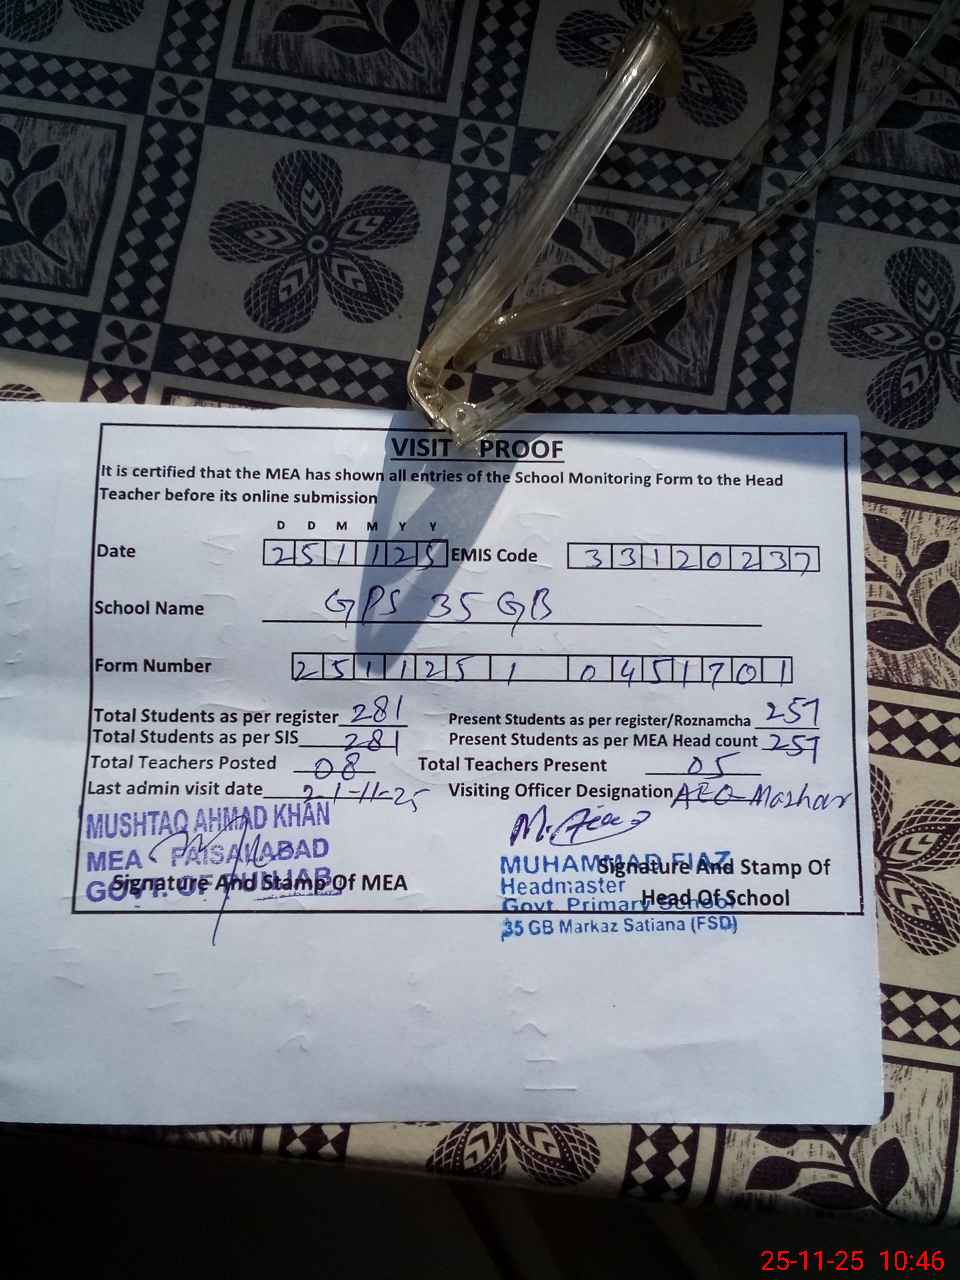 VISIT PROOF
It is certified that the MEA has shown all entries of the School Monitoring Form to the Head
Teacher before its online submission
D D M M Y Y
Date 251125 EMIS Code 33120237
School Name GPS 35 GB
Form Number 251125 1 0451701
Total Students as per register 281 Present Students as per register/Roznamcha 257
Total Students as per SIS 281 Present Students as per MEA Head count 257
Total Teachers Posted 08 Total Teachers Present 05
Last admin visit date 21-11-25 Visiting Officer Designation AEO-Mazhar
MUSHTAQ AHMAD KHAN
MEA FAISALABAD
GOVT. OF PUNJAB
Signature And Stamp Of MEA
M. Fiaz
MUHAMMAD FIAZ
Signature And Stamp Of
Headmaster
Head Of School
Govt. Primary School
35 GB Markaz Satiana (FSD)
25-11-25 10:46